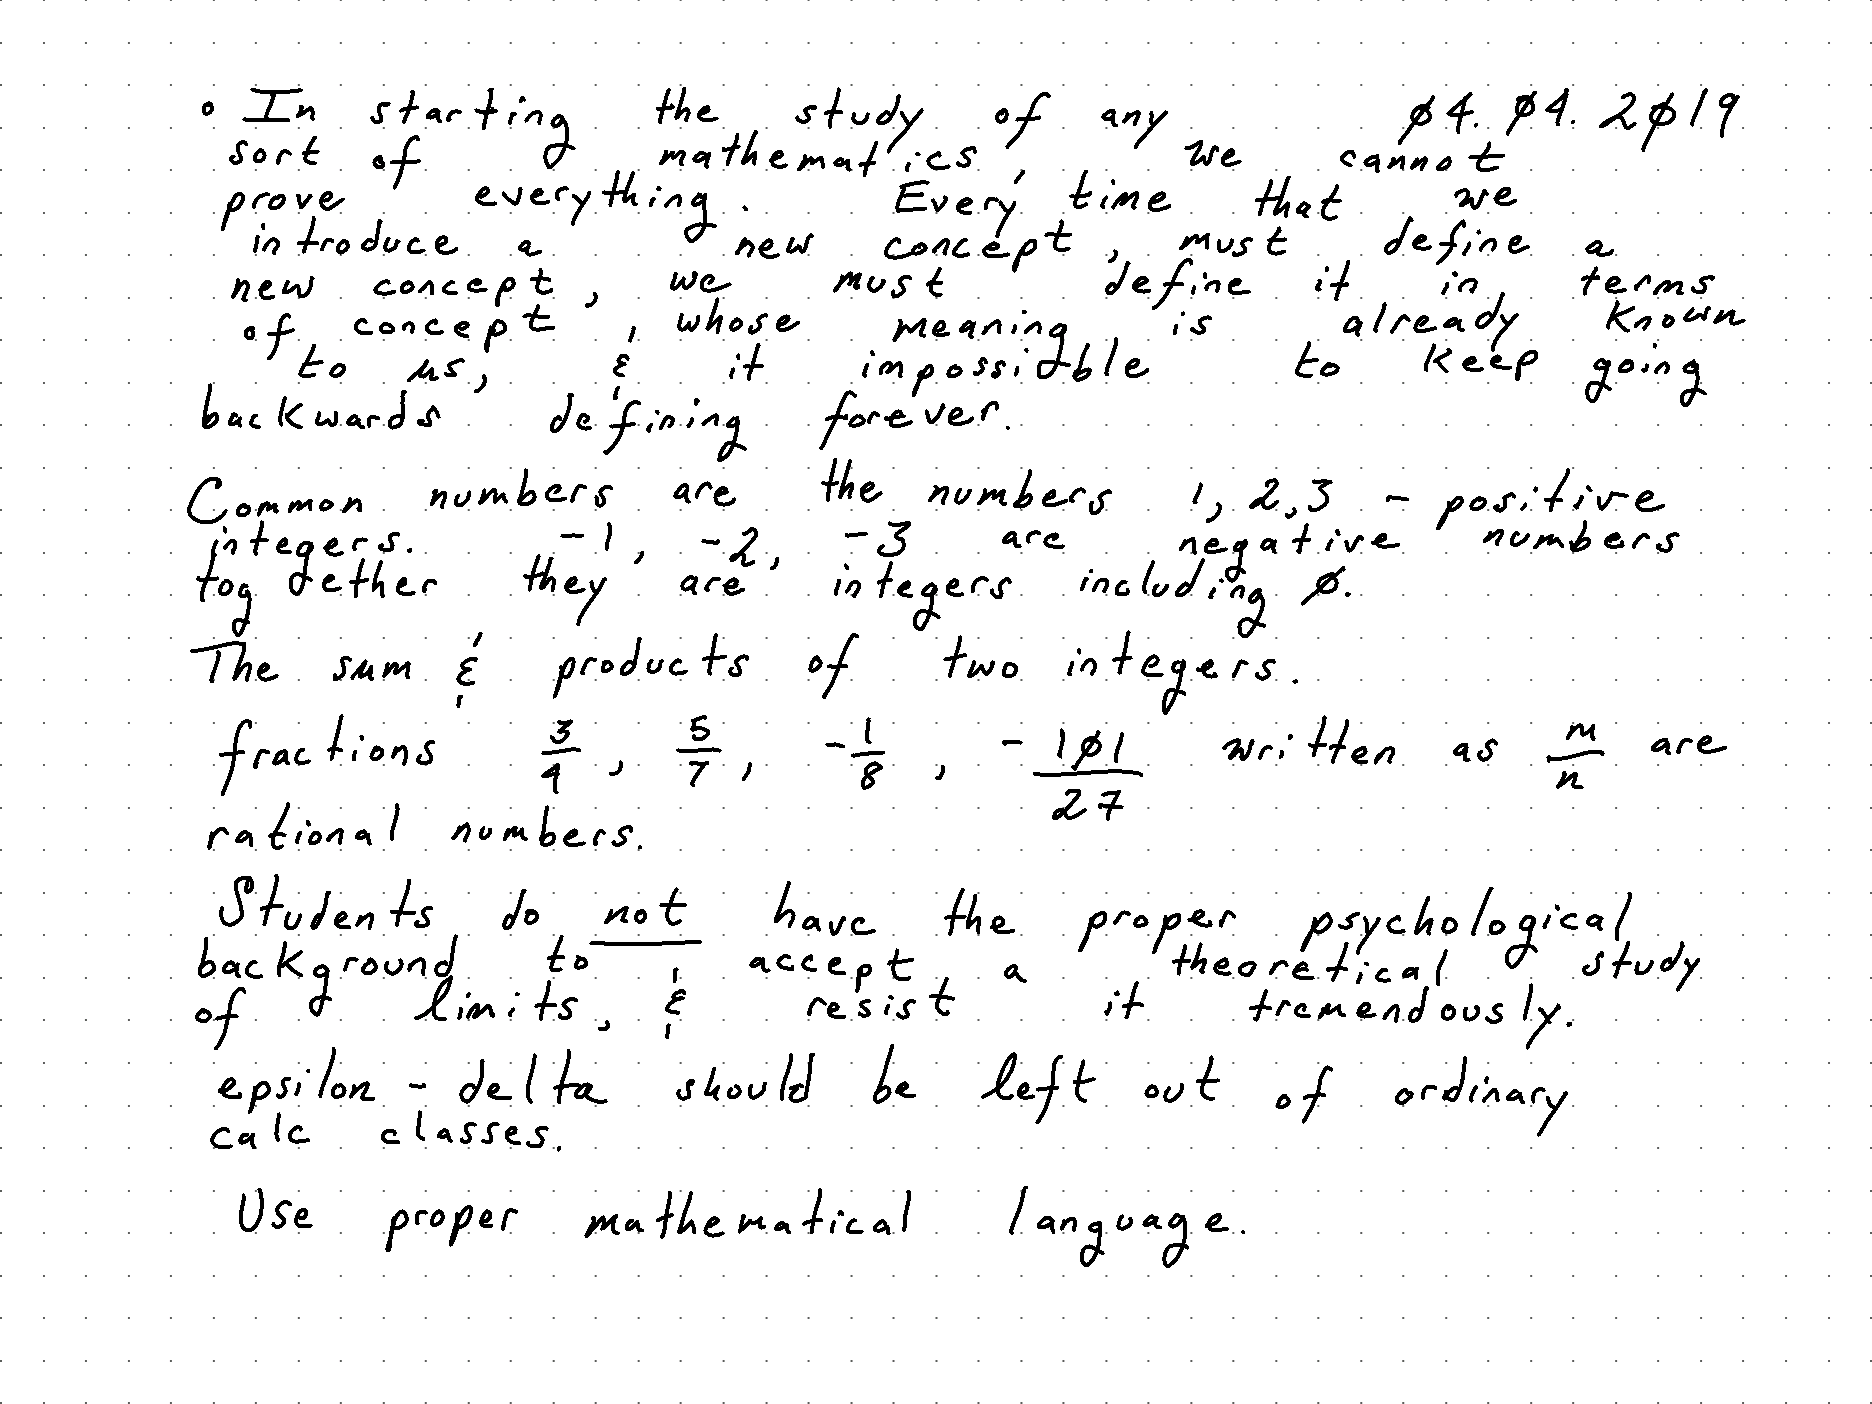 • In starting the study of any 04.04.2019
sort of mathematics, we cannot
prove everything. Every time that we
introduce a new concept, must define a
new concept, we must define it in terms
of concept, whose meaning is already known
to us, & it impossible to keep going
backwards defining forever.
Common numbers are the numbers 1, 2, 3 - positive
integers. -1, -2, -3 are negative numbers
together they are integers including 0.
The sum & products of two integers.
fractions 3/4, 5/7, -1/8, -101/27 written as m/n are
rational numbers.
Students do not have the proper psychological
background to accept a theoretical study
of limits, & resist it tremendously.
epsilon - delta should be left out of ordinary
calc classes.
Use proper mathematical language.